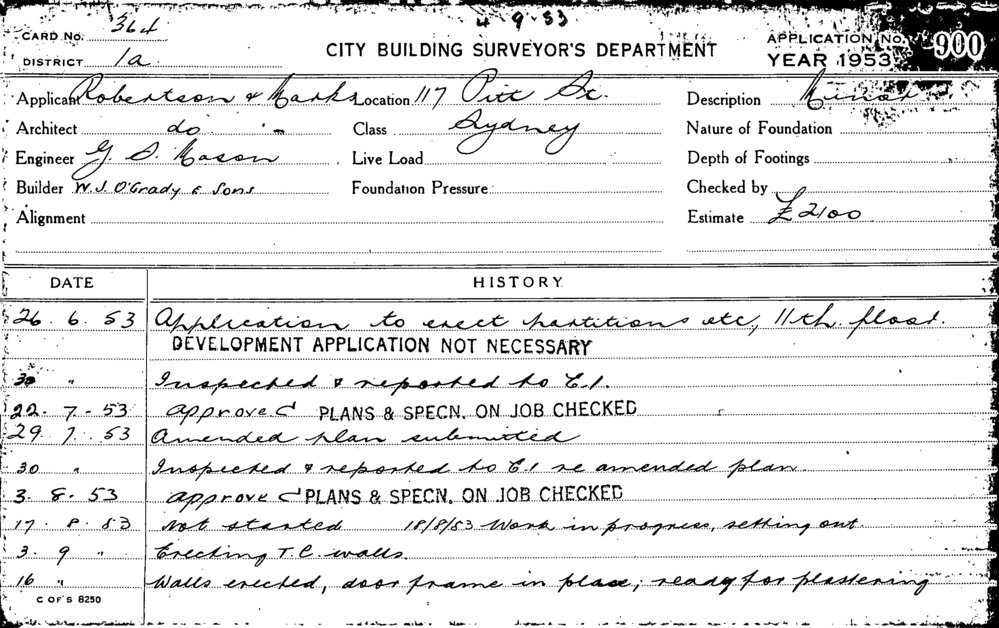 4 . 9 . 53
CARD No. 364 CITY BUILDING SURVEYOR'S DEPARTMENT APPLICATION No. 900
DISTRICT 1a YEAR 1953
Applicant Robertson & Marks Location 117 Pitt St. Description Minor
Architect do Class Sydney Nature of Foundation
Engineer G. S. Mason Live Load Depth of Footings
Builder W. J. O'Grady & Sons Foundation Pressure Checked by
Alignment Estimate £2100
DATE HISTORY
26 . 6 . 53 Application to erect partitions etc, 11th. floor.
DEVELOPMENT APPLICATION NOT NECESSARY
30 " Inspected & reported to C.I.
22 . 7 - 53 approved PLANS & SPECN. ON JOB CHECKED
29 . 7 . 53 Amended plan submitted
30 " Inspected & reported to C.I re amended plan.
3 . 8 . 53 approved PLANS & SPECN. ON JOB CHECKED
17 . 8 . 53 Not started 18/8/53 Work in progress, setting out
3 . 9 " Erecting T.C. walls.
16 " Walls erected, door frame in place, ready for plastering
C OF S 8250